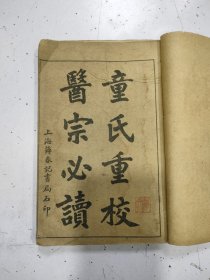 童氏重校
醫宗必讀
上海蔣春記書局石印